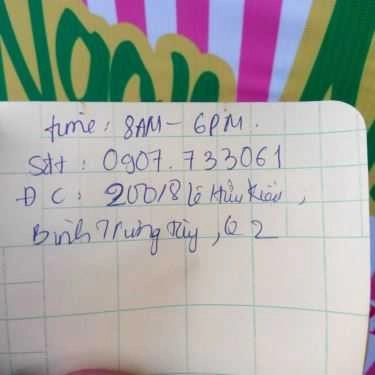 Ngon
time: 8AM - 6PM.
Sđt: 0907.733061
Đ C: 200/8 Lê Hữu Kiều,
Bình Trưng Tây, Q2